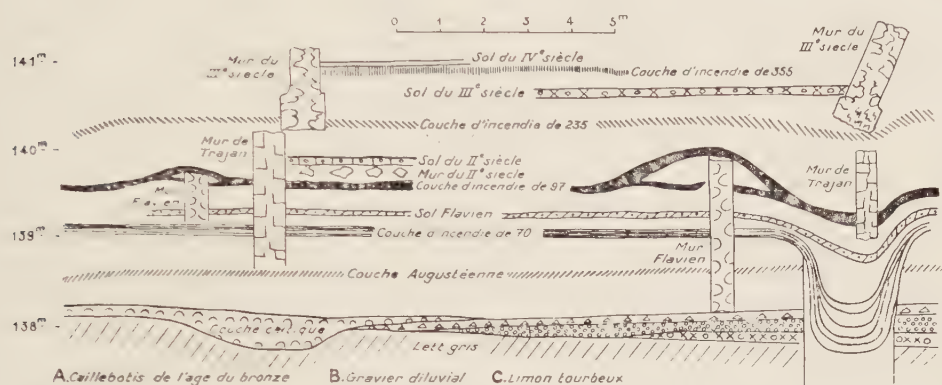 0 1 2 3 4 5 m
141m
Mur du
IIIe siècle
Sol du IVe siècle
Couche d'incendie de 355
Mur du
IIIe siècle
Sol du IIIe siècle
Couche d'incendia de 235
140m
Mur de
Trajan
Sol du IIe siècle
Mur du IIe siècle
Couche d'incendie de 97
Mur de
Trajan
M.
Flavien
Sol Flavien
139m
Couche d'incendie de 70
Mur
Flavien
Couche Augustéenne
138m
Couche celtique
Lett gris
A. Caillebotis de l'age du bronze B. Gravier diluvial C. Limon tourbeux